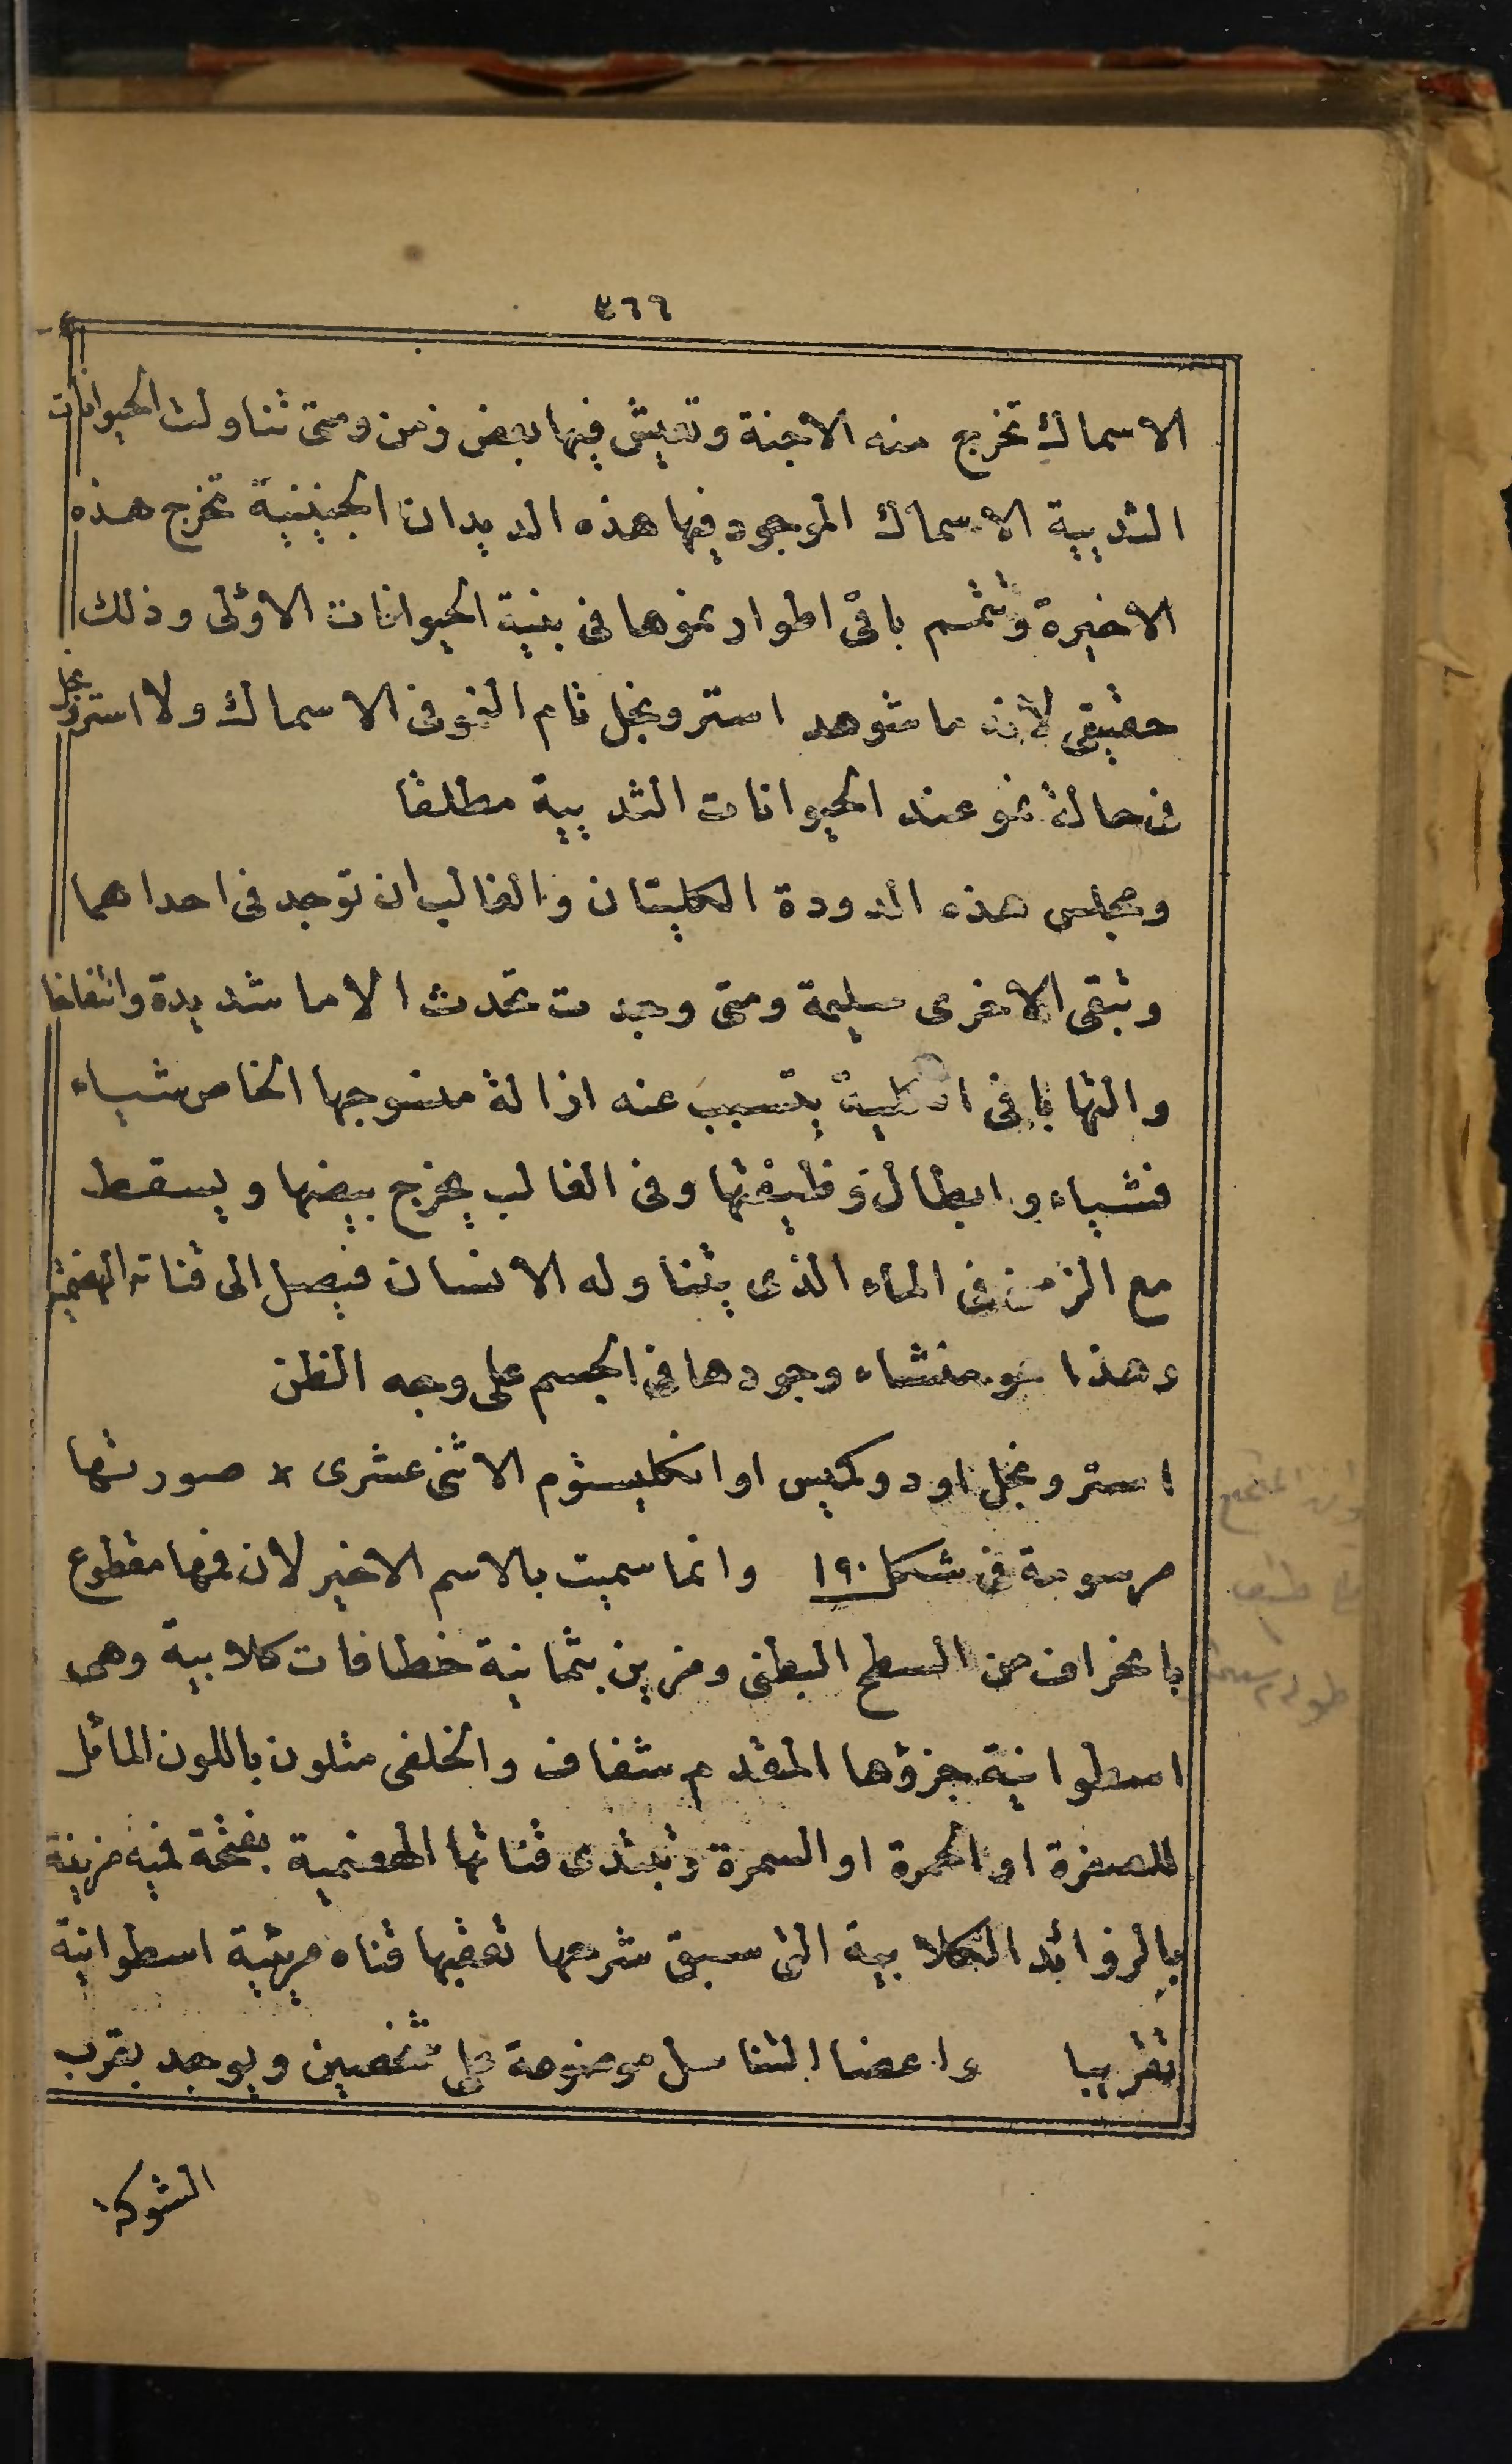 ٤٦٦
الاسماك تخرج منه الاجنة وتعيش فيها بعض زمن ومتى تناولت الحيوانات
الثديية الاسماك الموجود فيها هذه الديدان الجنينية تخرج هذه
الاخيرة وتتمم باقى اطوار نموها فى بنية الحيوانات الاولى وذلك
حقيقى لانه ما شوهد استرونجل تام النمو فى الاسماك ولا استرونجل
فى حالة نمو عند الحيوانات الثديية مطلقا
ومجلس هذه الدودة الكليتان والغالب ان توجد فى احداهما
وتبقى الاخرى سليمة ومتى وجدت تحدث الاما شديدة وانتفاخا
والتهابا فى الكلية يتسبب عنه ازالة منسوجها الخاص شياء
فشياء وابطال وظيفتها وفى الغالب يخرج بيضها ويسقط
مع الزمن فى الماء الذى يتناوله الانسان فيصل الى قناته الهضمية
وهذا هو منشاء وجودها فى الجسم على وجه الظن
استرونجل اودوكيس او انكليستوم الاثنى عشرى × صورتها
مرسومة فى شكل ١٩٠ وانما سميت بالاسم الاخير لان فمها مقطوع
بانحراف من السطح البطنى ومزين بثمانية خطافات كلابية وهى
اسطوانية جزؤها المقدم شفاف والخلفى متلون باللون المائل
للصفرة او الحمرة او السمرة وتبتدى قناتها الهضمية بفتحة فمية مزينة
بالزوائد الكلابية التى سبق شرحها تعقبها قناه مريئية اسطوانية
تقريبا واعضا التناسل موضوعة على شخصين ويوجد بقرب
الشوكة